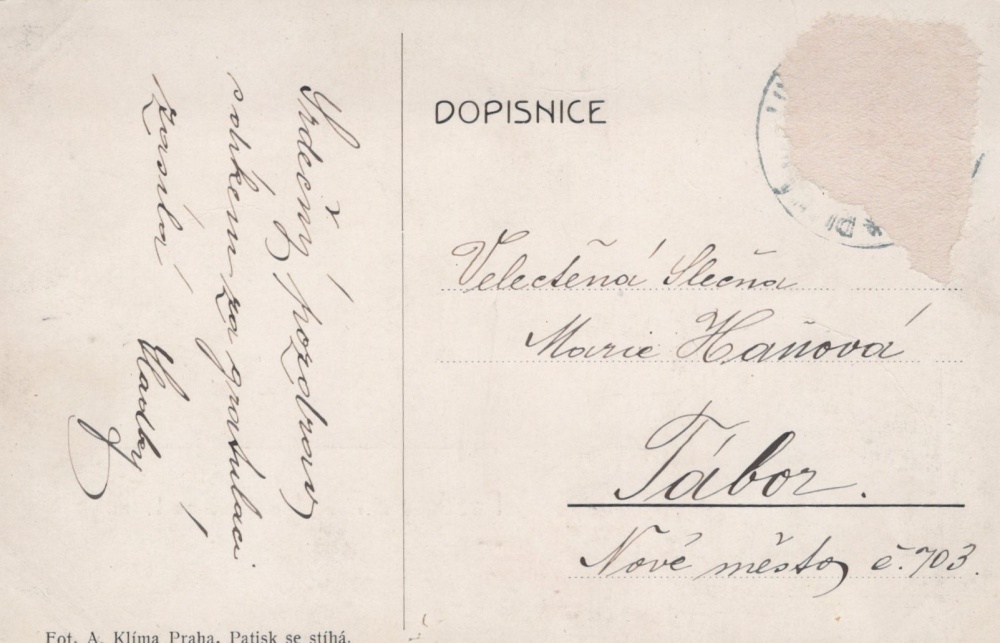 Srdečný pozdrav
s díkem za gratulaci
zasílá Hladký
DOPISNICE
Velectěná Slečna
Marie Haňová
Tábor.
Nové město č. 703.
Fot. A. Klíma Praha. Patisk se stíhá.